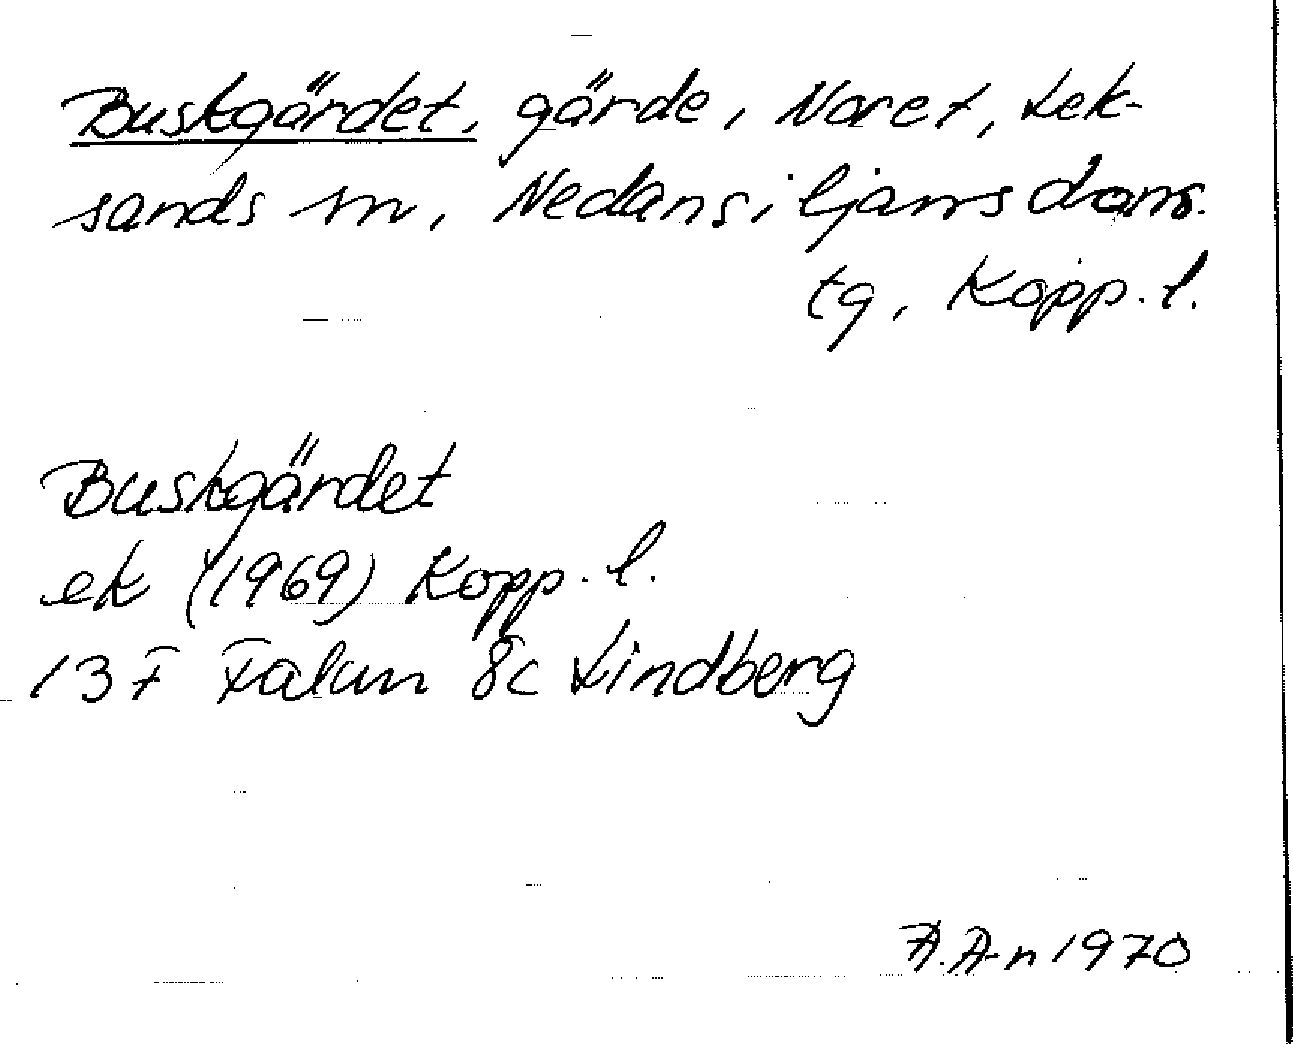 Buskgärdet, gärde, Noret, Lek-
sands sn, Nedansiljans doms.
tg, Kopp. l.
Buskgärdet
ek (1969) Kopp. l.
13 F Falun 8c Lindberg
A. A-n 1970